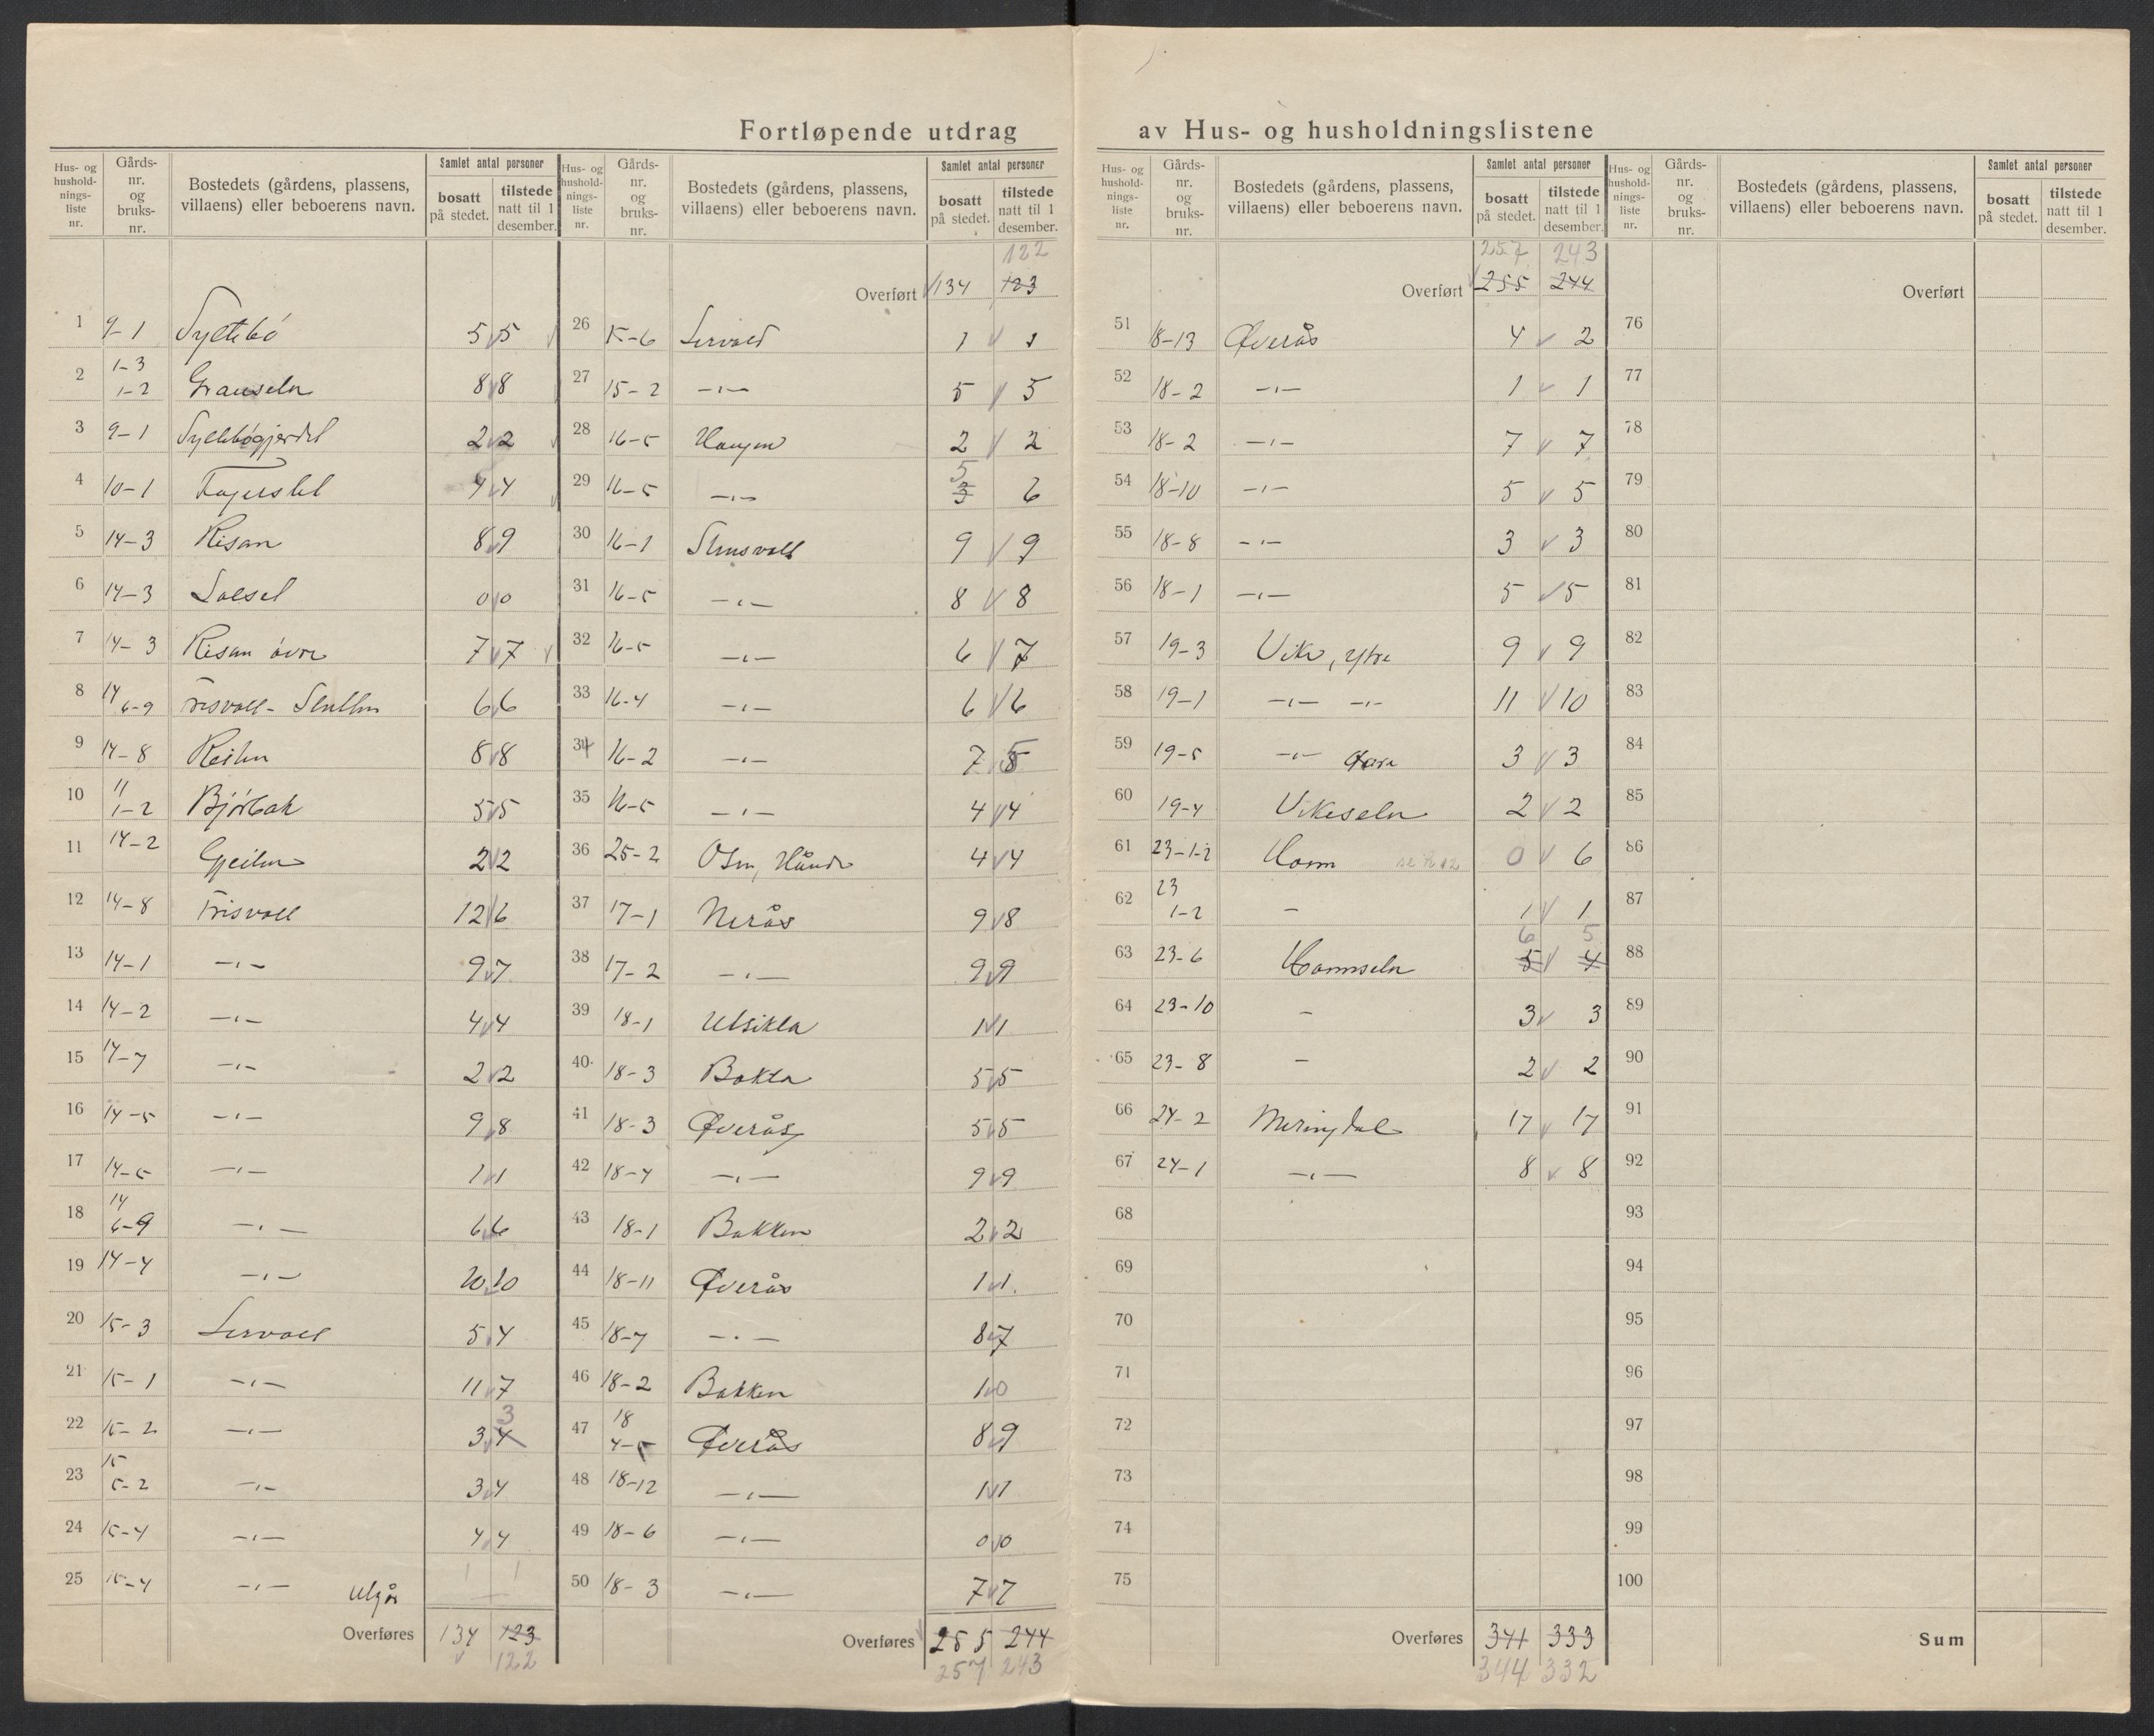 Fortløpende utdrag av Hus- og husholdningslistene
Hus- og hushold-nings-liste nr. | Gårds-nr. og bruks-nr. | Bostedets (gårdens, plassens, villaens) eller beboerens navn. | Samlet antal personer: bosatt på stedet. | tilstede natt til 1 desember.
1 9-1 Syltebö 5 5
2 1-3 1-2 Grauseln 8 8
3 9-1 Syltebögjerdet 2 2
4 10-1 Fagerslet 4 4
5 14-3 Risan 8 9
6 14-3 0 0
7 14-3 Risan övre 7 7
8 14 6-9 6 6
9 14-8 8 8
10 11 1-2 Bjørbak 5 5
11 14-2 Gjeilen 2 2
12 14-8 12 6
13 14-1 -"- 9 7
14 14-2 -"- 4 4
15 14-7 -"- 2 2
16 14-5 -"- 9 8
17 14-5 -"- 1 1
18 14 6-9 -"- 6 6
19 14-4 -"- 10 10
20 15-3 5 4
21 15-1 -"- 11 7
22 15-2 -"- 3 4 3
23 15 5-2 -"- 3 4
24 15-4 -"- 4 4
25 15-4 -"- Utgår 1 1
Overføres 134 123
122
Hus- og hushold-nings-liste nr. | Gårds-nr. og bruks-nr. | Bostedets (gårdens, plassens, villaens) eller beboerens navn. | Samlet antal personer: bosatt på stedet. | tilstede natt til 1 desember.
122
Overført 134 123
26 15-6 1 1
27 15-2 -"- 5 5
28 16-5 Haugen 2 2
29 16-5 -"- 5 3 6
30 16-1 9 9
31 16-5 -"- 8 8
32 16-5 -"- 6 7
33 16-4 -"- 6 6
34 16-2 -"- 7 5
35 16-5 -"- 4 4
36 25-2 4 4
37 17-1 Nerås 9 8
38 17-2 -"- 9 9
39 18-1 Utsikta 1 1
40 18-3 5 5
41 18-3 Øverås 5 5
42 18-4 -"- 9 9
43 18-1 Bakken 2 2
44 18-11 Øverås 1 1
45 18-7 -"- 8 7
46 18-2 Bakken 1 0
47 18 4-5 Øverås 8 9
48 18-12 -"- 1 1
49 18-6 -"- 0 0
50 18-3 -"- 7 7
Overføres 255 244
257 243
Hus- og hushold-nings-liste nr. | Gårds-nr. og bruks-nr. | Bostedets (gårdens, plassens, villaens) eller beboerens navn. | Samlet antal personer: bosatt på stedet. | tilstede natt til 1 desember.
257 243
Overført 255 244
51 18-13 Øverås 4 2
52 18-2 -"- 1 1
53 18-2 -"- 7 7
54 18-10 -"- 5 5
55 18-8 -"- 3 3
56 18-1 -"- 5 5
57 19-3 Vike, ytre 9 9
58 19-1 -"- -"- 11 10
59 19-5 -"- 3 3
60 19-4 Vikeseln 2 2
61 23-1-2 0 6
62 23 1-2 - 1 1
63 23-6 5 4 6 5
64 23-10 - 3 3
65 23-8 - 2 2
66 24-2 Meringdal 17 17
67 24-1 -"- 8 8
68
69
70
71
72
73
74
75
Overføres 341 333
344 332
Hus- og hushold-nings-liste nr. | Gårds-nr. og bruks-nr. | Bostedets (gårdens, plassens, villaens) eller beboerens navn. | Samlet antal personer: bosatt på stedet. | tilstede natt til 1 desember.
Overført
76
77
78
79
80
81
82
83
84
85
86
87
88
89
90
91
92
93
94
95
96
97
98
99
100
Sum